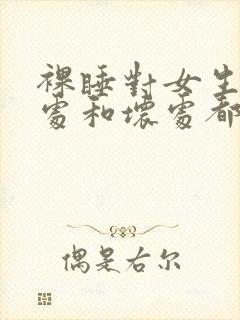 裸睡對女生
處和壞處都
偶是右尔